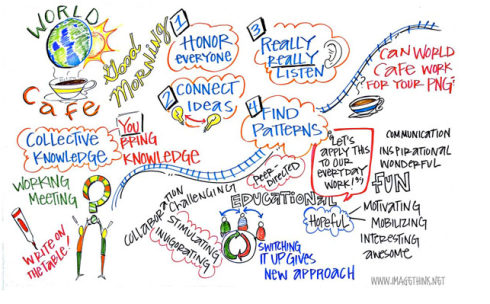 WORLD
Cafe
Good
MORNING
1
HONOR
EVERYONE
2 CONNECT
IDEAS
3
REALLY
REALLY
LISTEN
4 FIND
PATTERNS
CAN WORLD
CAFE WORK
FOR YOUR PNG?
COLLECTIVE
KNOWLEDGE
YOU
BRING
KNOWLEDGE
WORKING
MEETING
WRITE ON
THE TABLE!
PEER
DIRECTED
EDUCATIONAL
COLLABORATION
CHALLENGING
STIMULATING
INVIGORATING
SWITCHING
IT UP GIVES
NEW APPROACH
LET'S
APPLY THIS
TO OUR
EVERYDAY
WORK!
HOPEFUL
COMMUNICATION
INSPIRATIONAL
WONDERFUL
FUN
MOTIVATING
MOBILIZING
INTERESTING
AWESOME
WWW.IMAGETHINK.NET